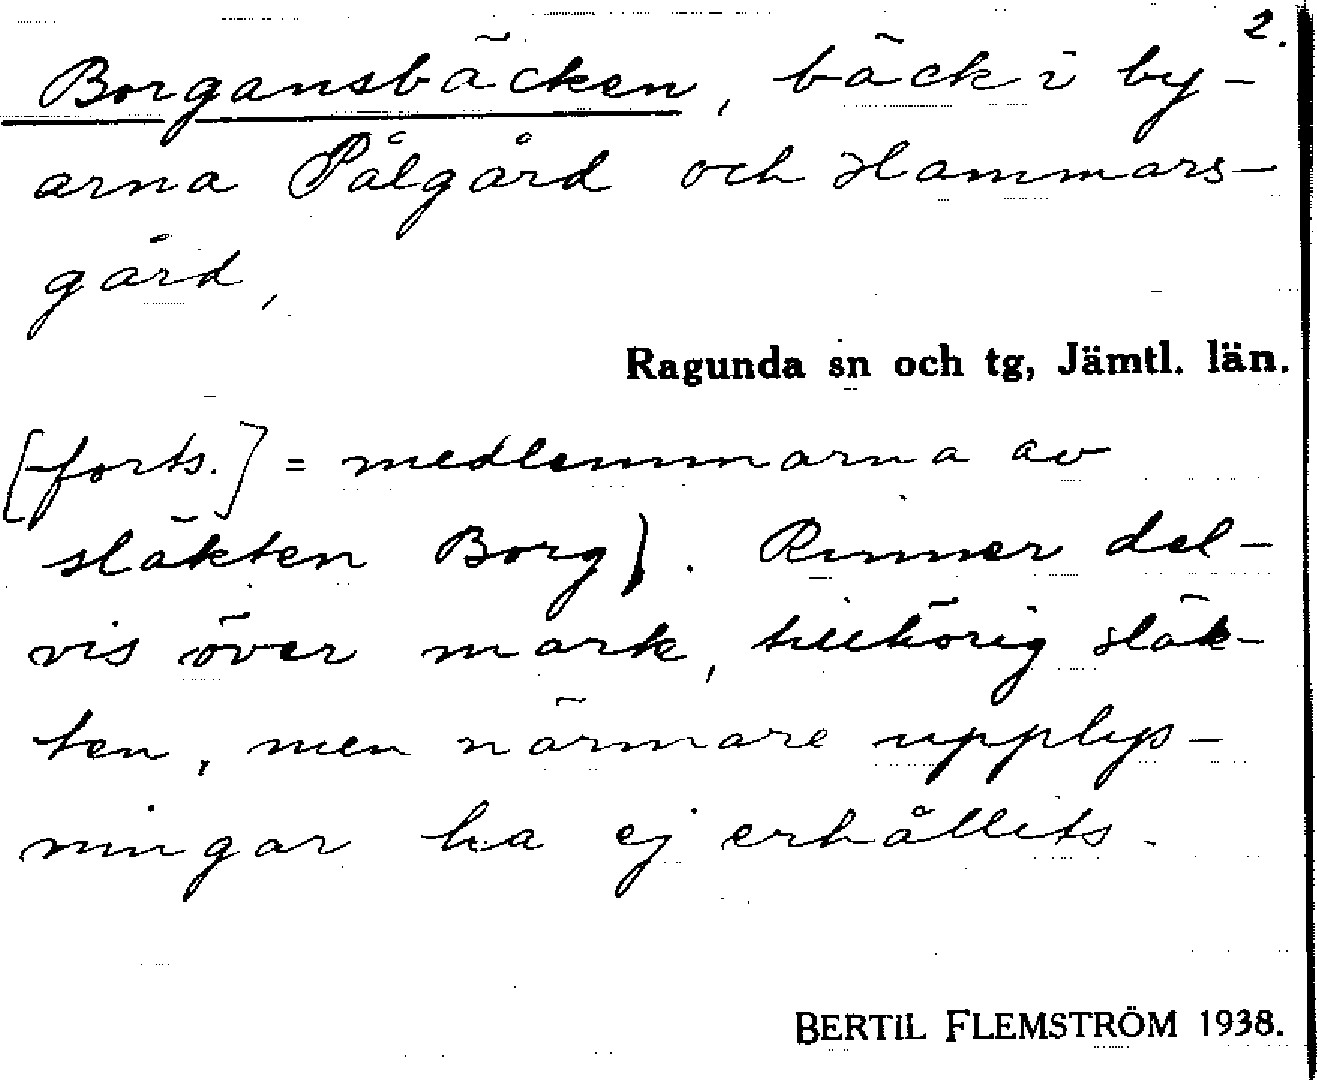 2.
Borgansbäcken, bäck i by-
arna Pålgård och Hammars-
gård,
Ragunda sn och tg, Jämtl. län.
[forts.] = medlemmarna av
släkten Borg). Rinner del-
vis över mark, tillhörig släk-
ten, men närmare upplys-
ningar ha ej erhållits.
BERTIL FLEMSTRÖM 1938.